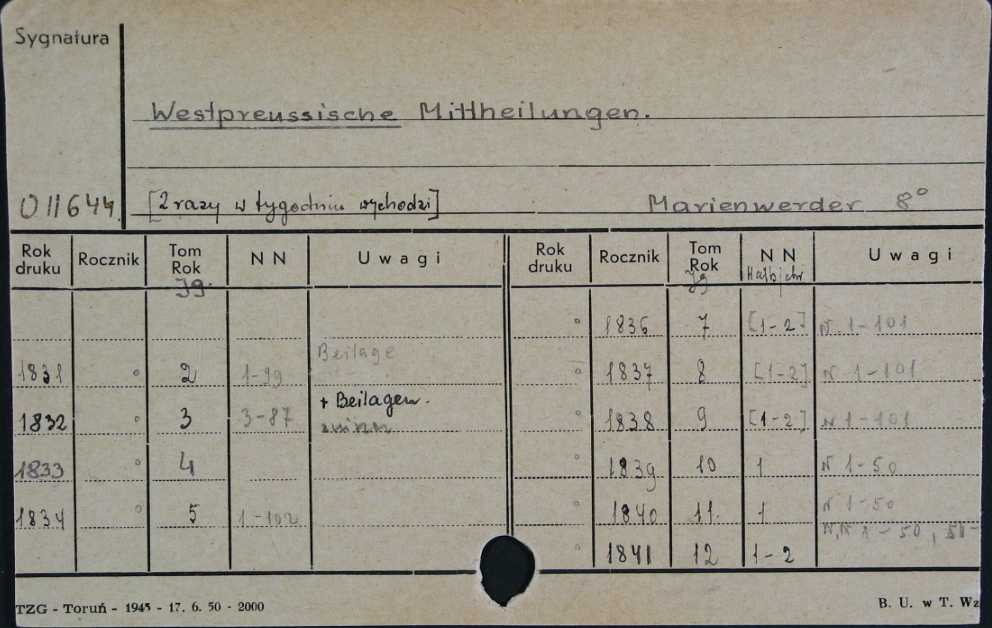 Sygnatura
Westpreussische Mittheilungen.
011644. [2 razy w tygodniu wychodzi] Marienwerder 8°
Rok druku Rocznik Tom Rok Jg. NN Uwagi
Beilage
1831 ° 2 1-99
1832 ° 3 3-87 + Beilagen.
1833 ° 4
1834 ° 5 1-102
Rok druku Rocznik Tom Rok Jg NN Halbjahr Uwagi
° 1836 7 [1-2] N 1-101
° 1837 8 [1-2] N 1-101
° 1838 9 [1-2] N 1-101
° 1839 10 1 N 1-50
° 1840 11. 1 N 1-50
° 1841 12 1-2 N,N 1-50, 51-
TZG - Toruń - 1945 - 17. 6. 50 - 2000
B. U. w T. Wz